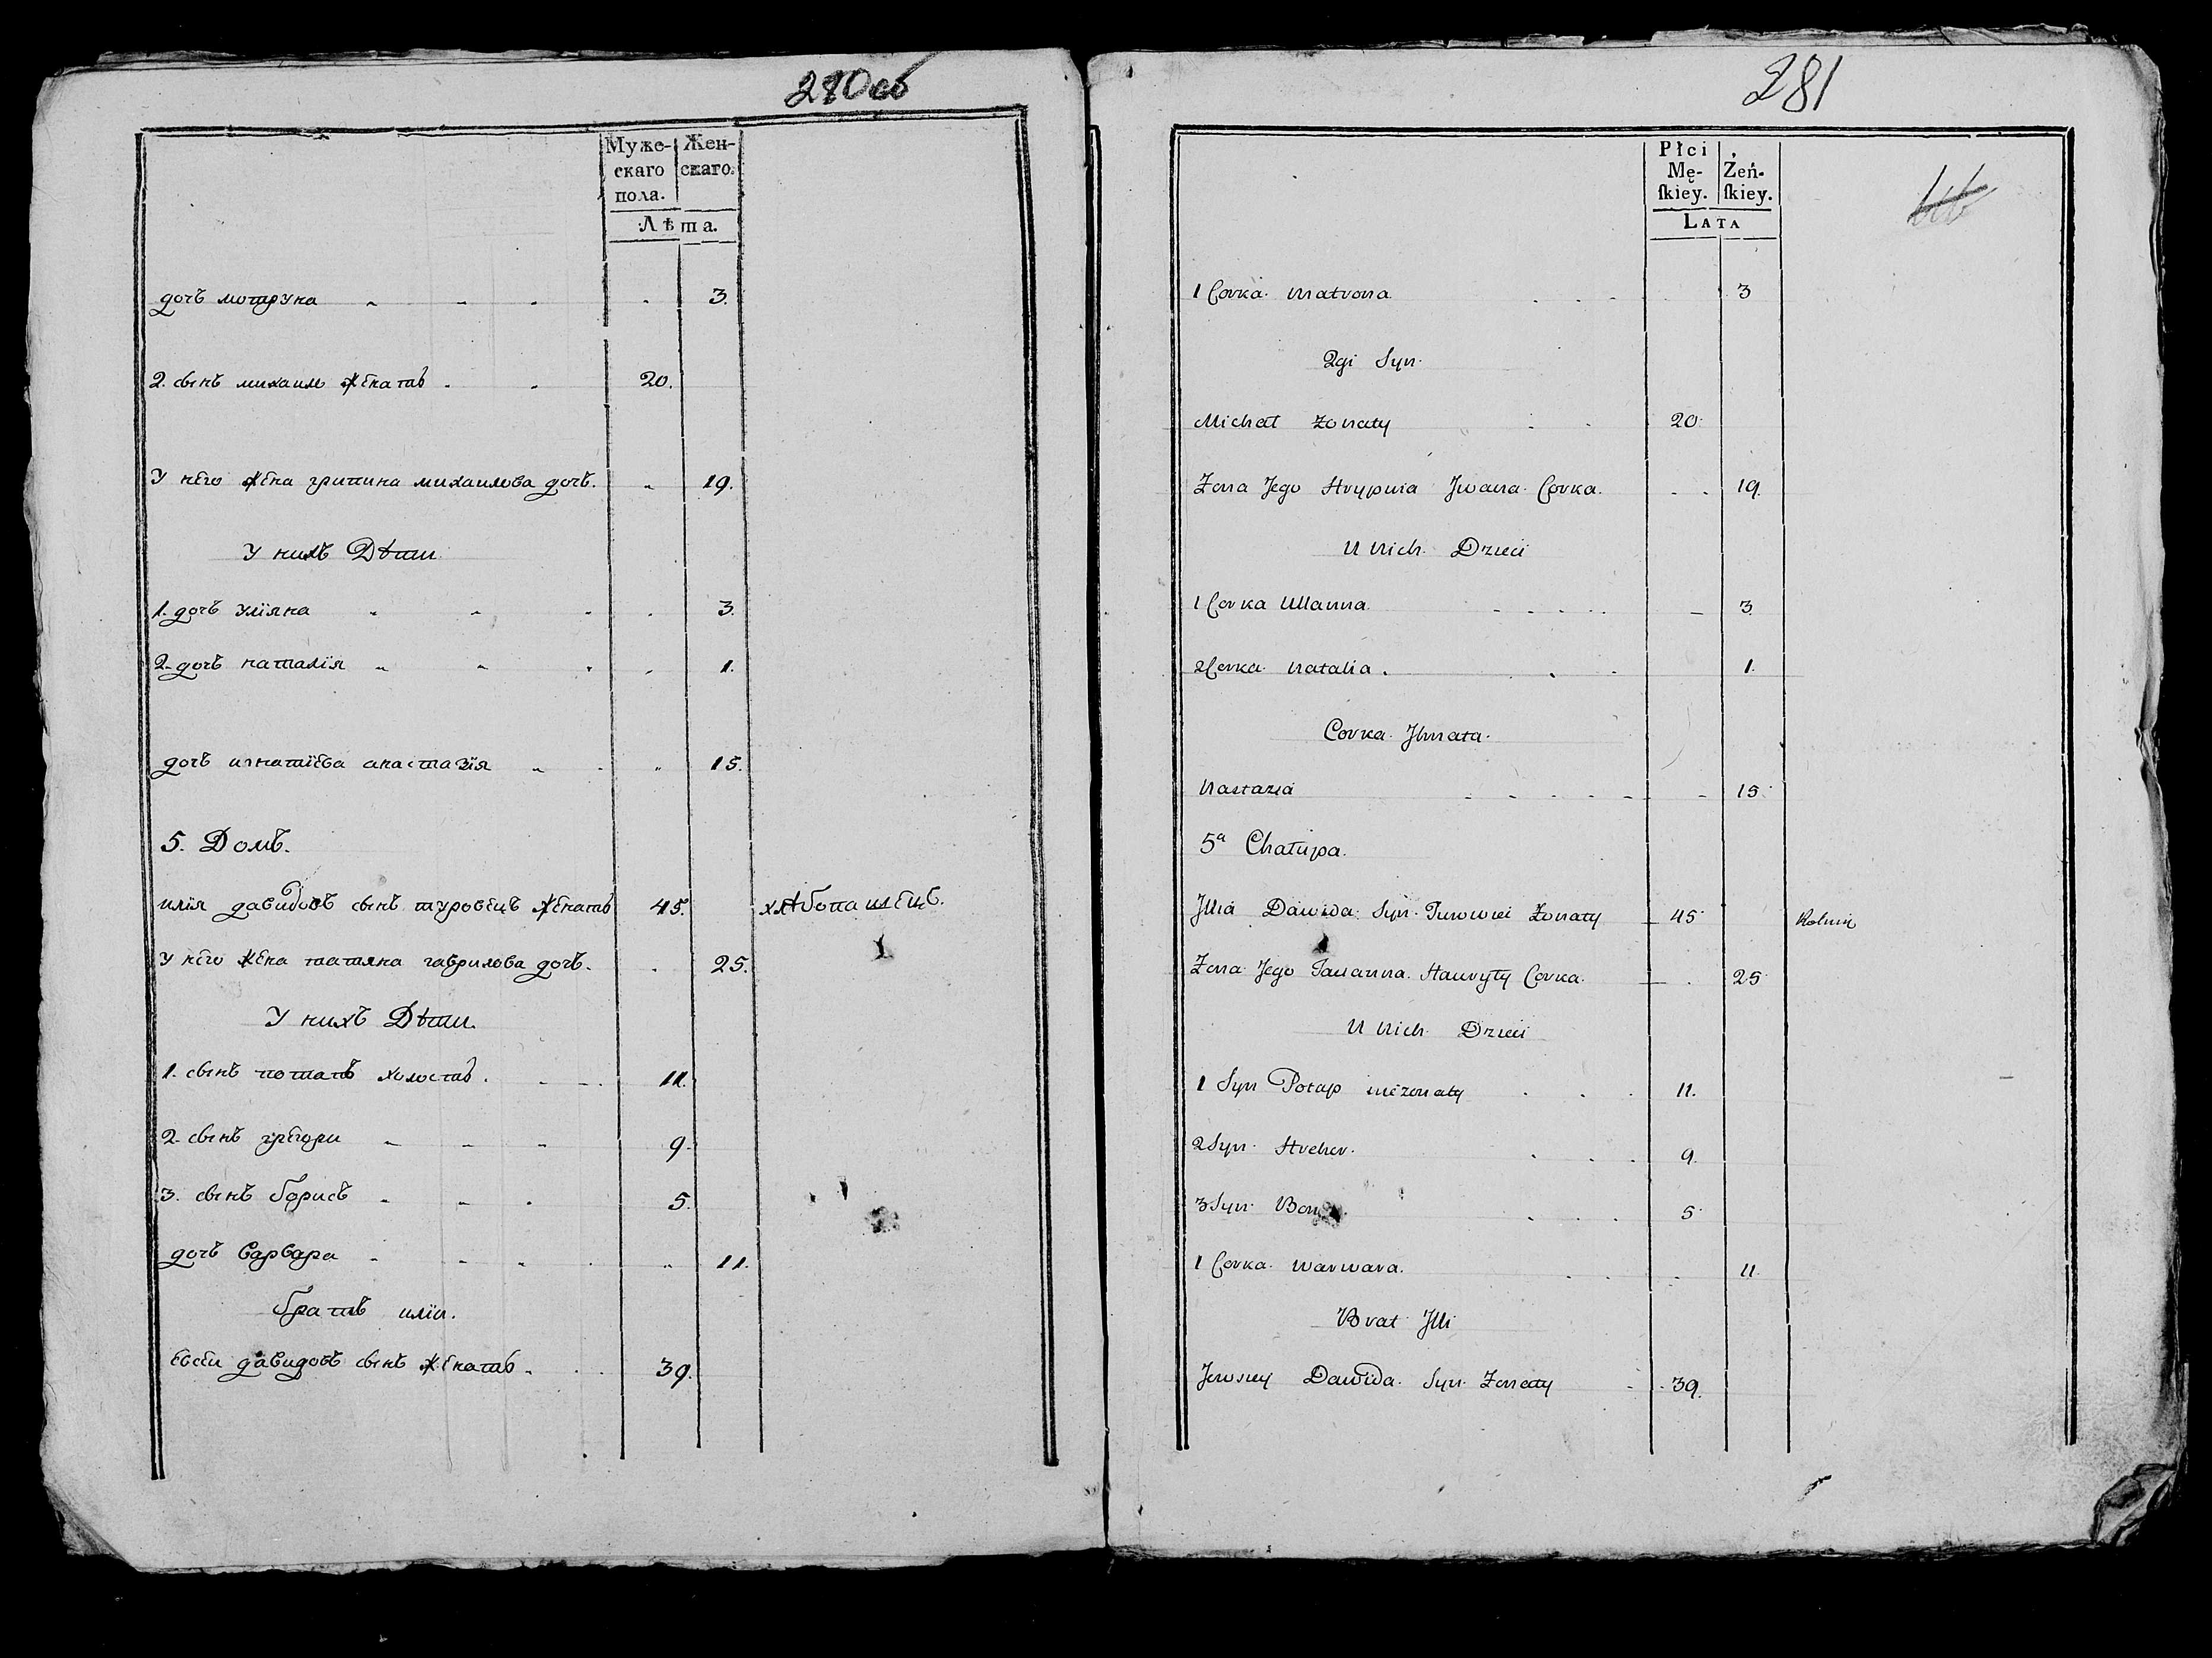 280об
Муже-скаго пола. Жен-скаго.
Лѣта.
дочъ мотруна 3.
2. сынъ михаилъ женатъ 20.
У него жена грипина михаилова дочъ. 19.
У нихъ Дѣти
1. дочъ улїяна 3.
2. дочъ наталїя 1.
дочъ игнатїева анастазїя 15.
5. Домъ.
илїя давидовъ сынъ туровецъ женатъ 45. хлѣбопашецъ.
У него жена татяна гаврилова дочъ. 25.
У нихъ Дѣти.
1. сынъ потапъ холостъ. 11.
2. сынъ грегори 9.
3. сынъ борисъ 5.
дочъ варвара 11.
братъ илїи.
евсеи давидовъ сынъ женатъ 39.
281
Płci Mę-ſkiey. Żeń-ſkiey.
LATA
1 Corka Matrona 3
2gi Syn
Michał żonaty 20
Zona Jego Hrypnia Jwana Corka. 19.
U Nich Dzieci
1 Corka Ullanna 3.
2 Corka Natalia 1.
Corka Jhnata
Nastazia 15
5a Chałupa.
Jllia Dawida Syn Turowiec Żonaty 45 Rolnik
Zona Jego Tacianna Hawryły Corka. 25
U Nich Dzieci
1 Syn Potap nieżonaty 11.
2 Syn Hrehor. 9.
3 Syn 5
1 Corka Warwara. 11
Brat Jlli
Jewsiey Dawida Syn Żonaty 39.